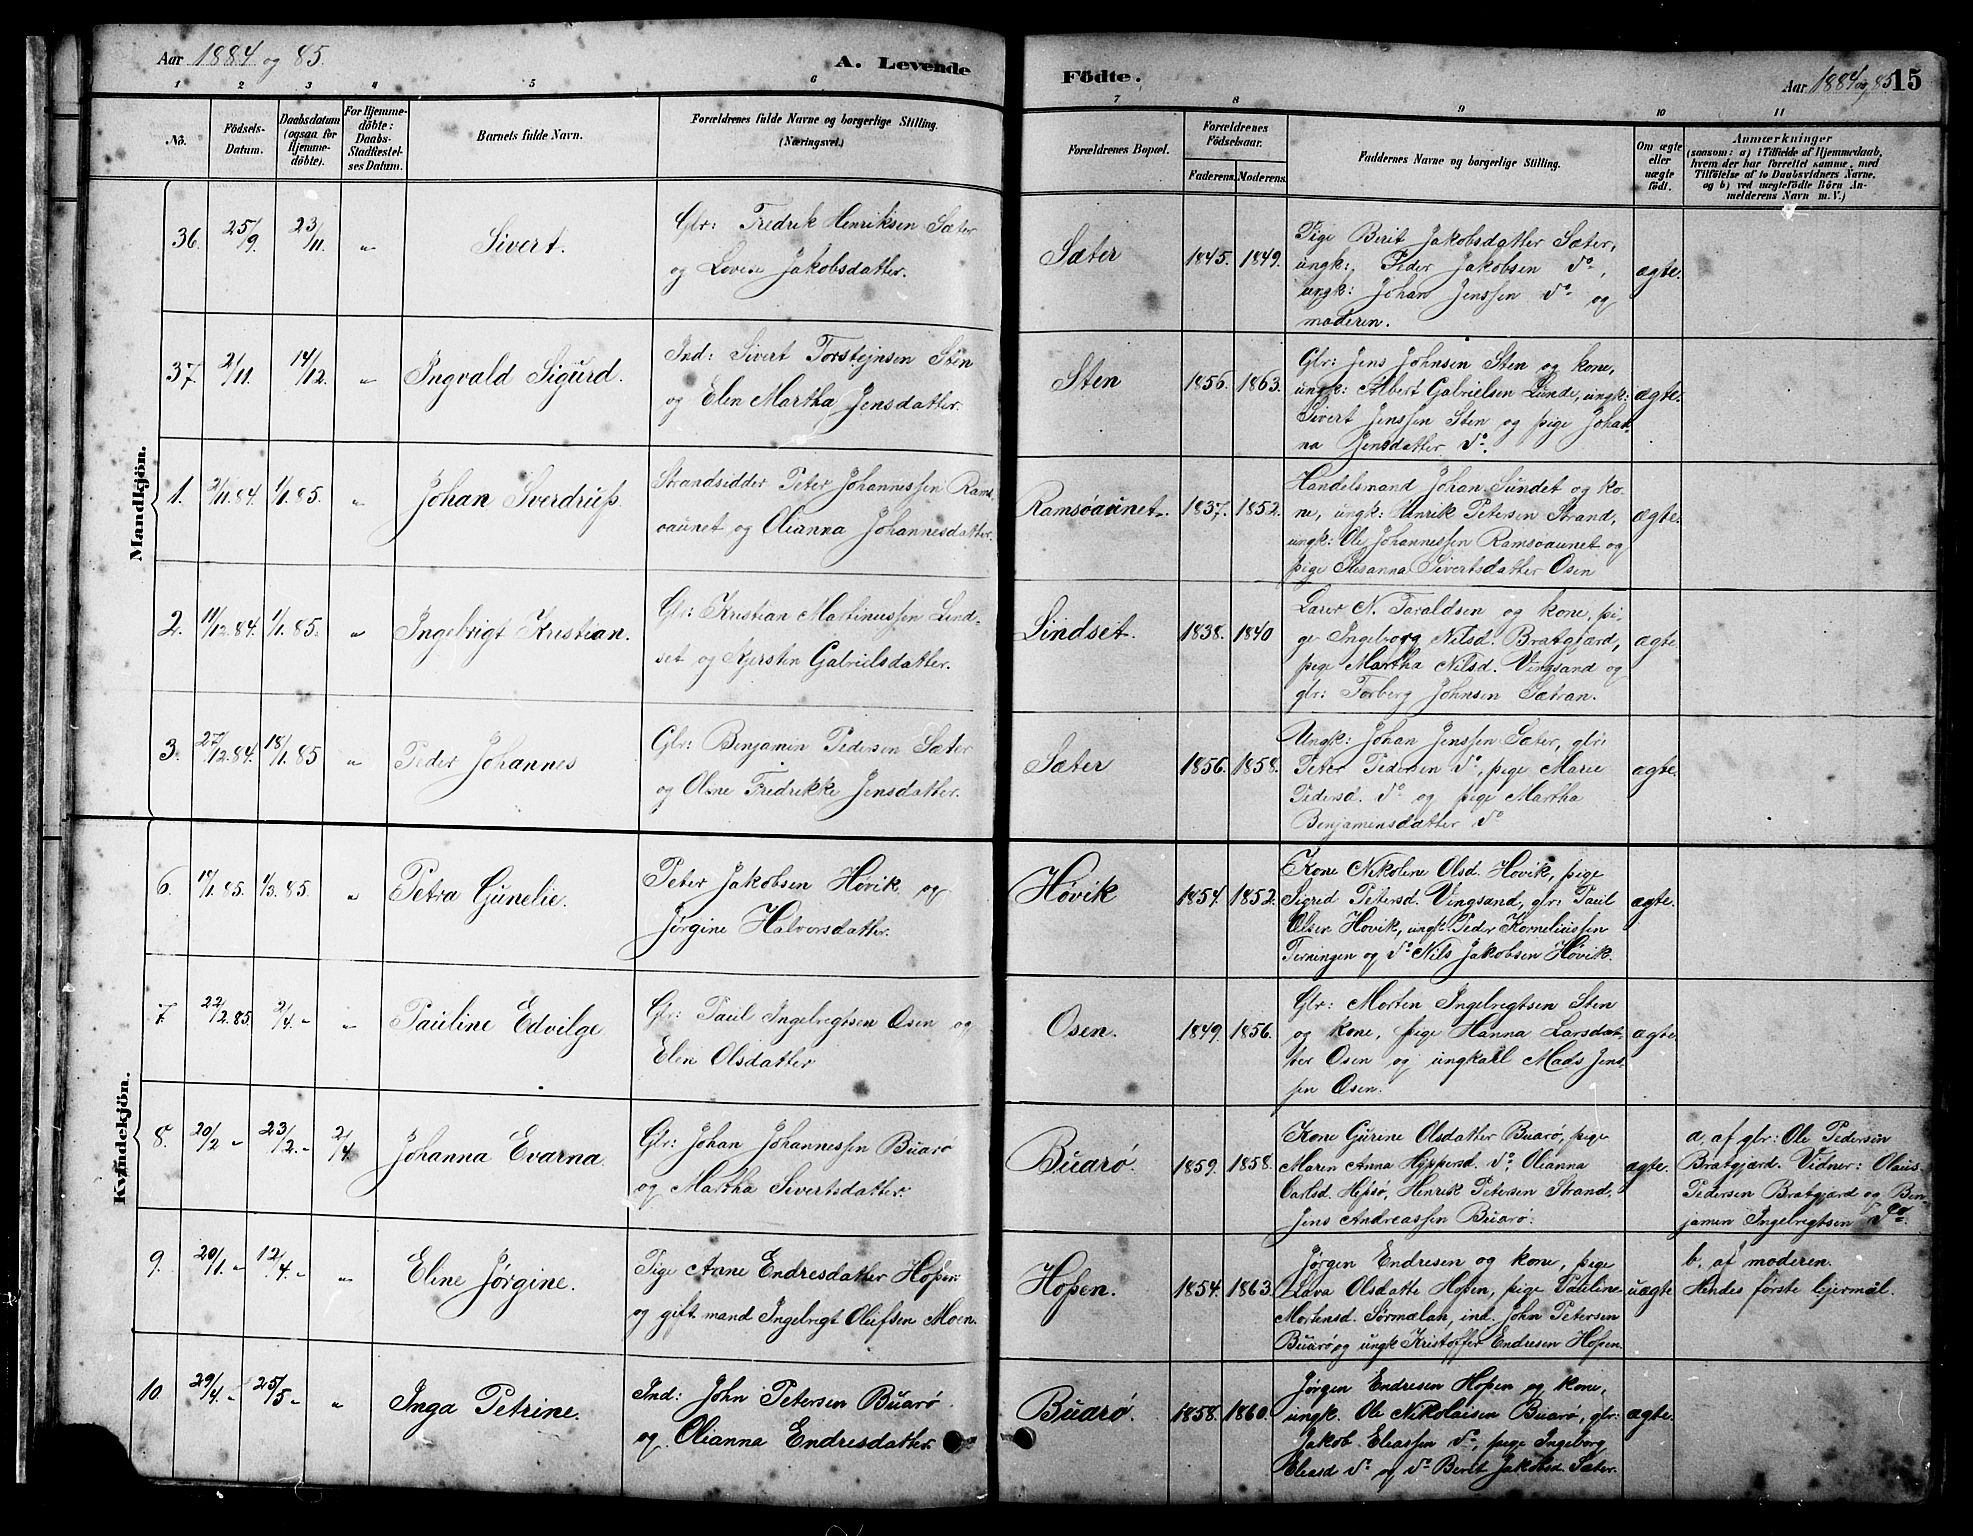 Aar 1884 og 85.
A. Levende
Födte.
Aar 1884 og 85.
15
1 2 3 4 5 6
7 8 9 10 11
No.
Födsels-
Datum.
Daabsdatum
(ogsaa for
Hjemme-
döbte).
For Hjemme-
döbte:
Daabs-
Stadfæstel-
ses Datum.
Barnets fulde Navn.
Forældrenes fulde Navne og borgerlige Stilling.
(Næringsvei.)
Forældrenes Bopæl.
Forældrenes
Födselsaar.
Faderens.
Moderens.
Faddernes Navne og borgerlige Stilling.
Om ægte
eller
uægte
født.
Anmærkninger
(saasom: a) i Tilfælde af Hjemmedaab,
hvem der har forrettet samme, med
Tilföielse af to Daabsvidners Navne,
og b) ved uægtefödte Börn An-
melderens Navn m. V.)
Mandkjön.
36. 25/9 23/11. „ Sivert.
Glr: Fredrik Henriksen Sæter
og Lovise Jakobsdatter.
Sæter 1845. 1849.
Pige Berit Jakobsdatter Sæter,
ungk: Peder Jakobsen do,
ungk: Johan Jenssen do og
moderen.
ægte.
37. 2/11. 14/12. „ Ingvald Sigurd.
Ind: Sivert Torstejnsen Sten
og Elen Martha Jensdatter.
Sten 1856. 1863.
Glr: Jens Johnsen Sten og kone,
ungk: Albert Gabrielsen Lunde, ungk:
Sivert Jenssen Sten og pige Johan-
na Jensdatter do.
ægte.
1. 2/11.84. 1/1.85. „ Johan Sverdrup.
Strandsidder Peter Johannessen Rams-
øaunet og Olianna Johannesdatter.
Ramsøaunet. 1837. 1852.
Handelsmand Johan Sundet og ko-
ne, ungk: Henrik Petersen Strand,
ungk: Ole Johannessen Ramsøaunet og
pige Susanna Sivertsdatter Osen
ægte.
2. 11/12.84. 1/1.85. „ Ingebrigt Kristian.
Glr: Kristian Martinussen Lind-
set og Kjersten Gabrielsdatter.
Lindset. 1838. 1840
Lærer N. Taraldsen og kone, pi-
ge Ingeborg Nilsd. Bratgjærd,
pige Martha Nilsd. Vingsand og
glr: Torberg Johnsen Sætran.
ægte
3. 27/12.84. 18/1.85 „ Peder Johannes
Glr: Benjamin Pedersen Sæter
og Oline Fredrikke Jensdatter.
Sæter 1856. 1858.
Ungk: Johan Jenssen Sæter, glr:
Peter Pedersen do, pige Marie
Pedersd. do og pige Martha
Benjaminsdatter do
ægte.
Kvindekjön.
6. 17/1.85. 1/3.85. „ Petra Gunelie.
Peter Jakobsen Høvik og
Jørgine Halvorsdatter.
Høvik 1854. 1852.
Kone Nikoline Olsd. Høvik, pige
Sigrid Petersd. Vingsand, glr: Paul
Olsen Høvik, ungk: Peder Korneliussen
Terningen og do Nils Jakobsen Høvik.
ægte.
7. 22/2.85. 2/4.„ „ Pauline Edvilge
Glr: Paul Ingebrigtsen Osen og
Elen Olsdatter
Osen. 1849. 1856.
Glr: Morten Ingebrigtsen Sten
og kone, pige Hanna Larsdat-
ter Osen og ungkarl Mads Jens-
sen Osen.
ægte.
8. 20/2 „ 23/2.„ 2/4. Johanna Evarna.
Glr: Johan Johannessen Buarø
og Martha Sivertsdatter.
Buarø. 1859. 1858.
Kone Gurine Olsdatter Buarø, pige
Maren Anna Hyppersd. do, Olianna
Carlsd. Hepsø, Henrik Petersen Strand,
Jens Andreassen Buarø.
ægte.
a, af glr: Ole Pedersen
Bratgjærd. Vidner: Olaus
Pedersen Bratgjærd og Ben-
jamin Ingebrigtsen do.
9. 20/1.„ 12/4.„ „ Eline Jørgine.
Pige Anne Endresdatter Hopen
og gift mand Ingebrigt Olufsen Moen.
Hopen. 1854. 1863.
Jørgen Endresen og kone, pige
Lava Olsdatte Hopen, pige Pauline
Mortensd. Sørmalan, ind. John Petersen
Buarø og ungk Kristoffer Endresen Hopen.
uægte
b, af moderen.
Hendes første lejermål.
10. 29/4.„ 25/5.„ „ Inga Petrine.
Ind: John Petersen Buarø
og Olianna Endresdatter.
Buarø. 1858. 1860.
Jørgen Endresen Hopen og kone,
ungk. Ole Nikolaisen Buarø, glr:
Jakob Eliassen do, pige Ingeborg
Eliasd do og do Berit Jakobsd. Sæter.
ægte.